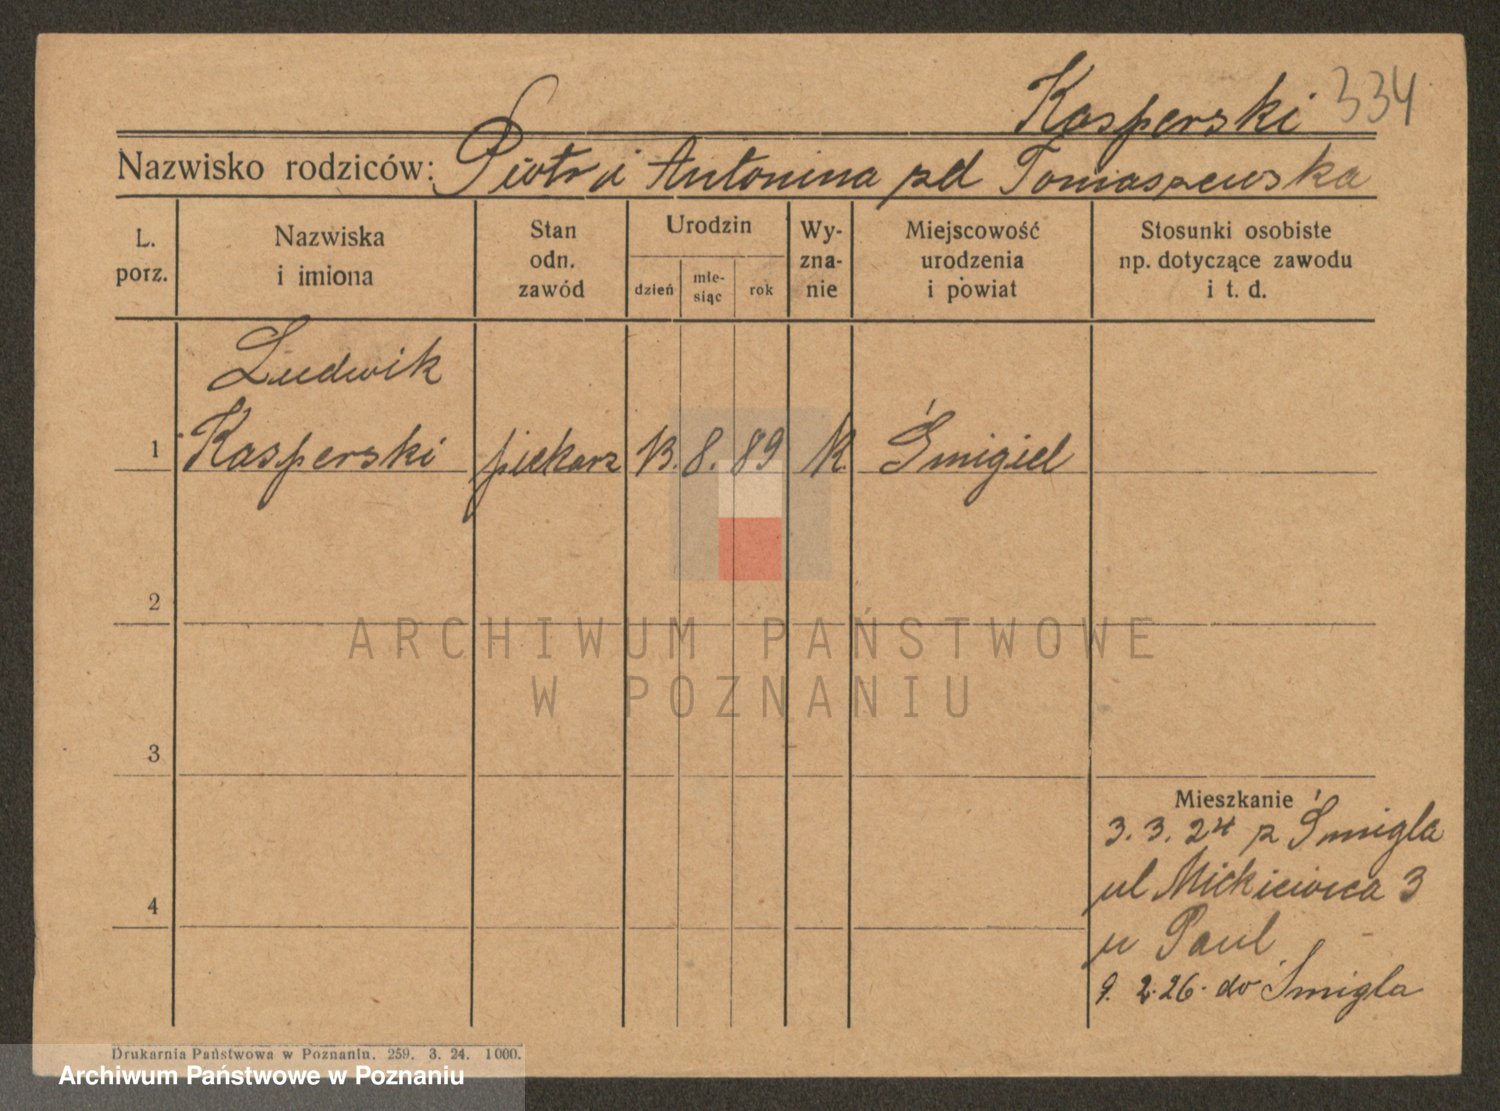 Kasperski 334
Nazwisko rodziców: Piotr i Antonina zd Tomaszewska
L. porz.
Nazwiska i imiona
Stan odn. zawód
Urodzin
dzień
mie- siąc
rok
Wy- zna- nie
Miejscowość urodzenia i powiat
Stosunki osobiste np. dotyczące zawodu i t. d.
Ludwik
1 Kasperski piekarz 13. 8. 89 K. Śmigiel
2
ARCHIWUM PAŃSTWOWE
W POZNANIU
3
Mieszkanie
3. 3. 24 z Śmigla
ul Mickiewicza 3
4
u Paul
9. 2. 26. do Śmigla
Drukarnia Państwowa w Poznaniu. 259. 3. 24. 1000.
Archiwum Państwowe w Poznaniu